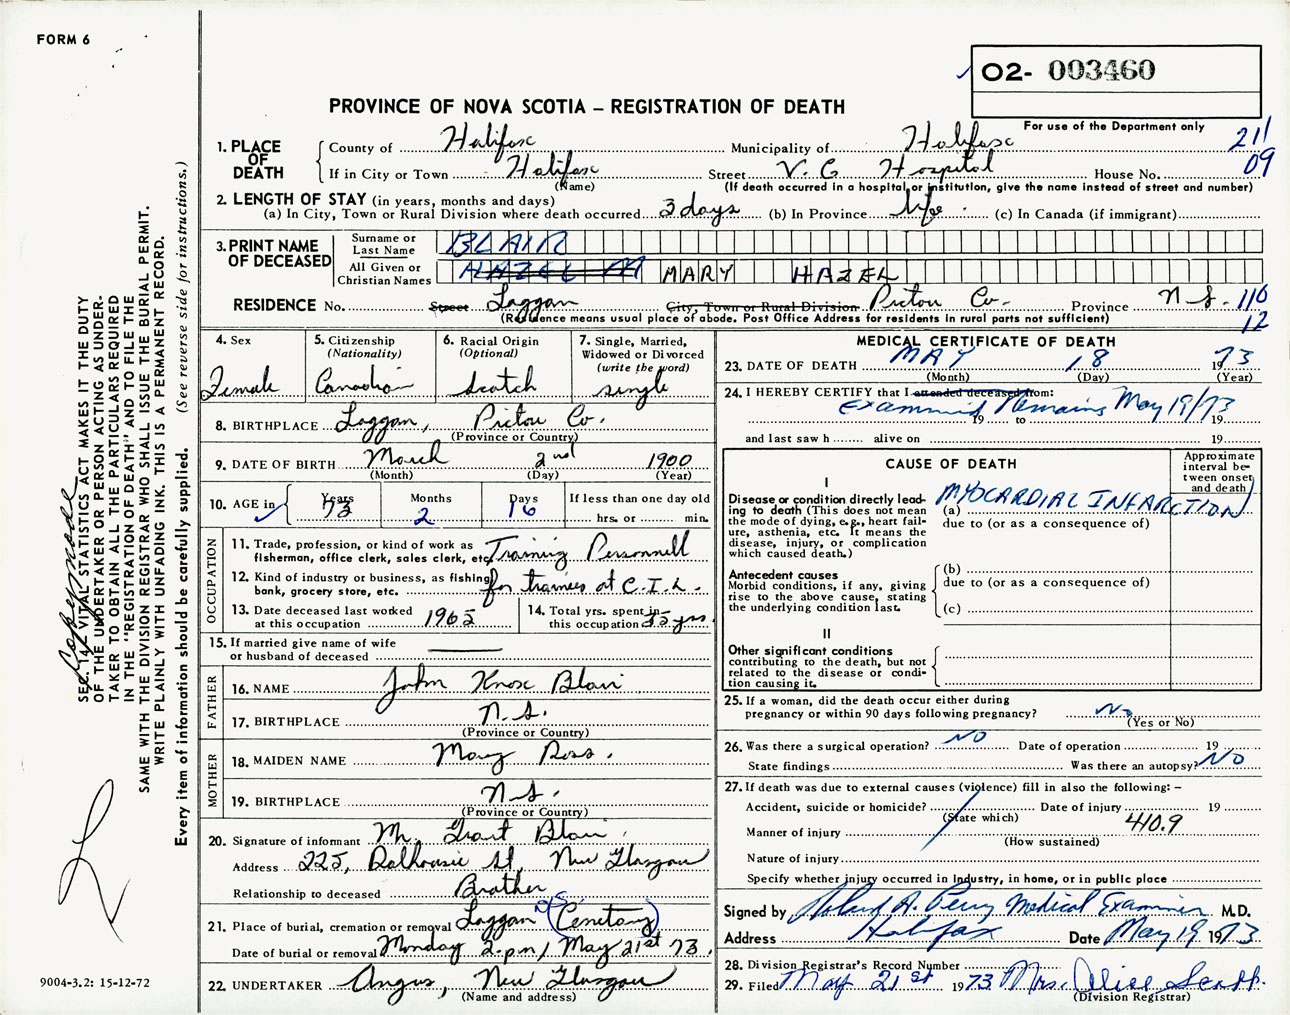 FORM 6
O2- 003460
For use of the Department only
PROVINCE OF NOVA SCOTIA – REGISTRATION OF DEATH
211
09
1. PLACE OF DEATH
County of Halifax Municipality of Halifax
If in City or Town Halifax Street V. G Hospital House No.
(Name) (If death occurred in a hospital or institution, give the name instead of street and number)
2. LENGTH OF STAY (in years, months and days)
(a) In City, Town or Rural Division where death occurred 3 days (b) In Province life. (c) In Canada (if immigrant)
3. PRINT NAME OF DECEASED
Surname or Last Name BLAIR
All Given or Christian Names HAZEL M MARY HAZEL
RESIDENCE No. Street Laggan City, Town or Rural Division Pictou Co. Province N.S. 116
12
(Residence means usual place of abode. Post Office Address for residents in rural parts not sufficient)
4. Sex Female
5. Citizenship (Nationality) Canadian
6. Racial Origin (Optional) Scotch
7. Single, Married, Widowed or Divorced (write the word) single
8. BIRTHPLACE Laggan, Pictou Co.
(Province or Country)
9. DATE OF BIRTH March 2nd 1900
(Month) (Day) (Year)
10. AGE in Years 73 Months 2 Days 16 If less than one day old
hrs. or min.
OCCUPATION
11. Trade, profession, or kind of work as fisherman, office clerk, sales clerk, etc. Training Personnell
12. Kind of industry or business, as fishing, bank, grocery store, etc. for trainees at C.I.L.
13. Date deceased last worked at this occupation 1965
14. Total yrs. spent in this occupation 35 yrs.
15. If married give name of wife or husband of deceased
FATHER
16. NAME John Knox Blair
17. BIRTHPLACE N.S.
(Province or Country)
MOTHER
18. MAIDEN NAME Mary Ross.
19. BIRTHPLACE N.S.
(Province or Country)
20. Signature of informant Mr. Grant Blair
Address 225, Dalhousie St, New Glasgow
Relationship to deceased Brother
21. Place of burial, cremation or removal Laggan N.S. (Cemetary)
Date of burial or removal Monday 2.p.m, May 21st 73.
22. UNDERTAKER Angus, New Glasgow
(Name and address)
MEDICAL CERTIFICATE OF DEATH
23. DATE OF DEATH MAY 18 1973
(Month) (Day) (Year)
24. I HEREBY CERTIFY that I attended deceased from:
Examined Remains May 19/73
19 to 19
and last saw h alive on 19
CAUSE OF DEATH
Approximate interval between onset and death
I
Disease or condition directly leading to death (This does not mean the mode of dying, e.g., heart failure, asthenia, etc. It means the disease, injury, or complication which caused death.)
(a) MYOCARDIAL INFARCTION
due to (or as a consequence of)
Antecedent causes
Morbid conditions, if any, giving rise to the above cause, stating the underlying condition last.
(b)
due to (or as a consequence of)
(c)
II
Other significant conditions
contributing to the death, but not related to the disease or condition causing it.
25. If a woman, did the death occur either during pregnancy or within 90 days following pregnancy? No
(Yes or No)
26. Was there a surgical operation? NO Date of operation 19
State findings Was there an autopsy? NO
27. If death was due to external causes (violence) fill in also the following: –
Accident, suicide or homicide? Date of injury 19
(State which)
Manner of injury 410.9
(How sustained)
Nature of injury
Specify whether injury occurred in industry, in home, or in public place
Signed by Roland A. Perry Medical Examiner M.D.
Address Halifax Date May 19 1973
28. Division Registrar's Record Number
29. Filed May 21st 1973 Mrs. Alice
(Division Registrar)
SEC. 14, VITAL STATISTICS ACT MAKES IT THE DUTY
OF THE UNDERTAKER OR PERSON ACTING AS UNDER-
TAKER TO OBTAIN ALL THE PARTICULARS REQUIRED
IN THE "REGISTRATION OF DEATH" AND TO FILE THE
SAME WITH THE DIVISION REGISTRAR WHO SHALL ISSUE THE BURIAL PERMIT.
WRITE PLAINLY WITH UNFADING INK. THIS IS A PERMANENT RECORD.
Every item of information should be carefully supplied. (See reverse side for instructions.)
9004-3.2: 15-12-72